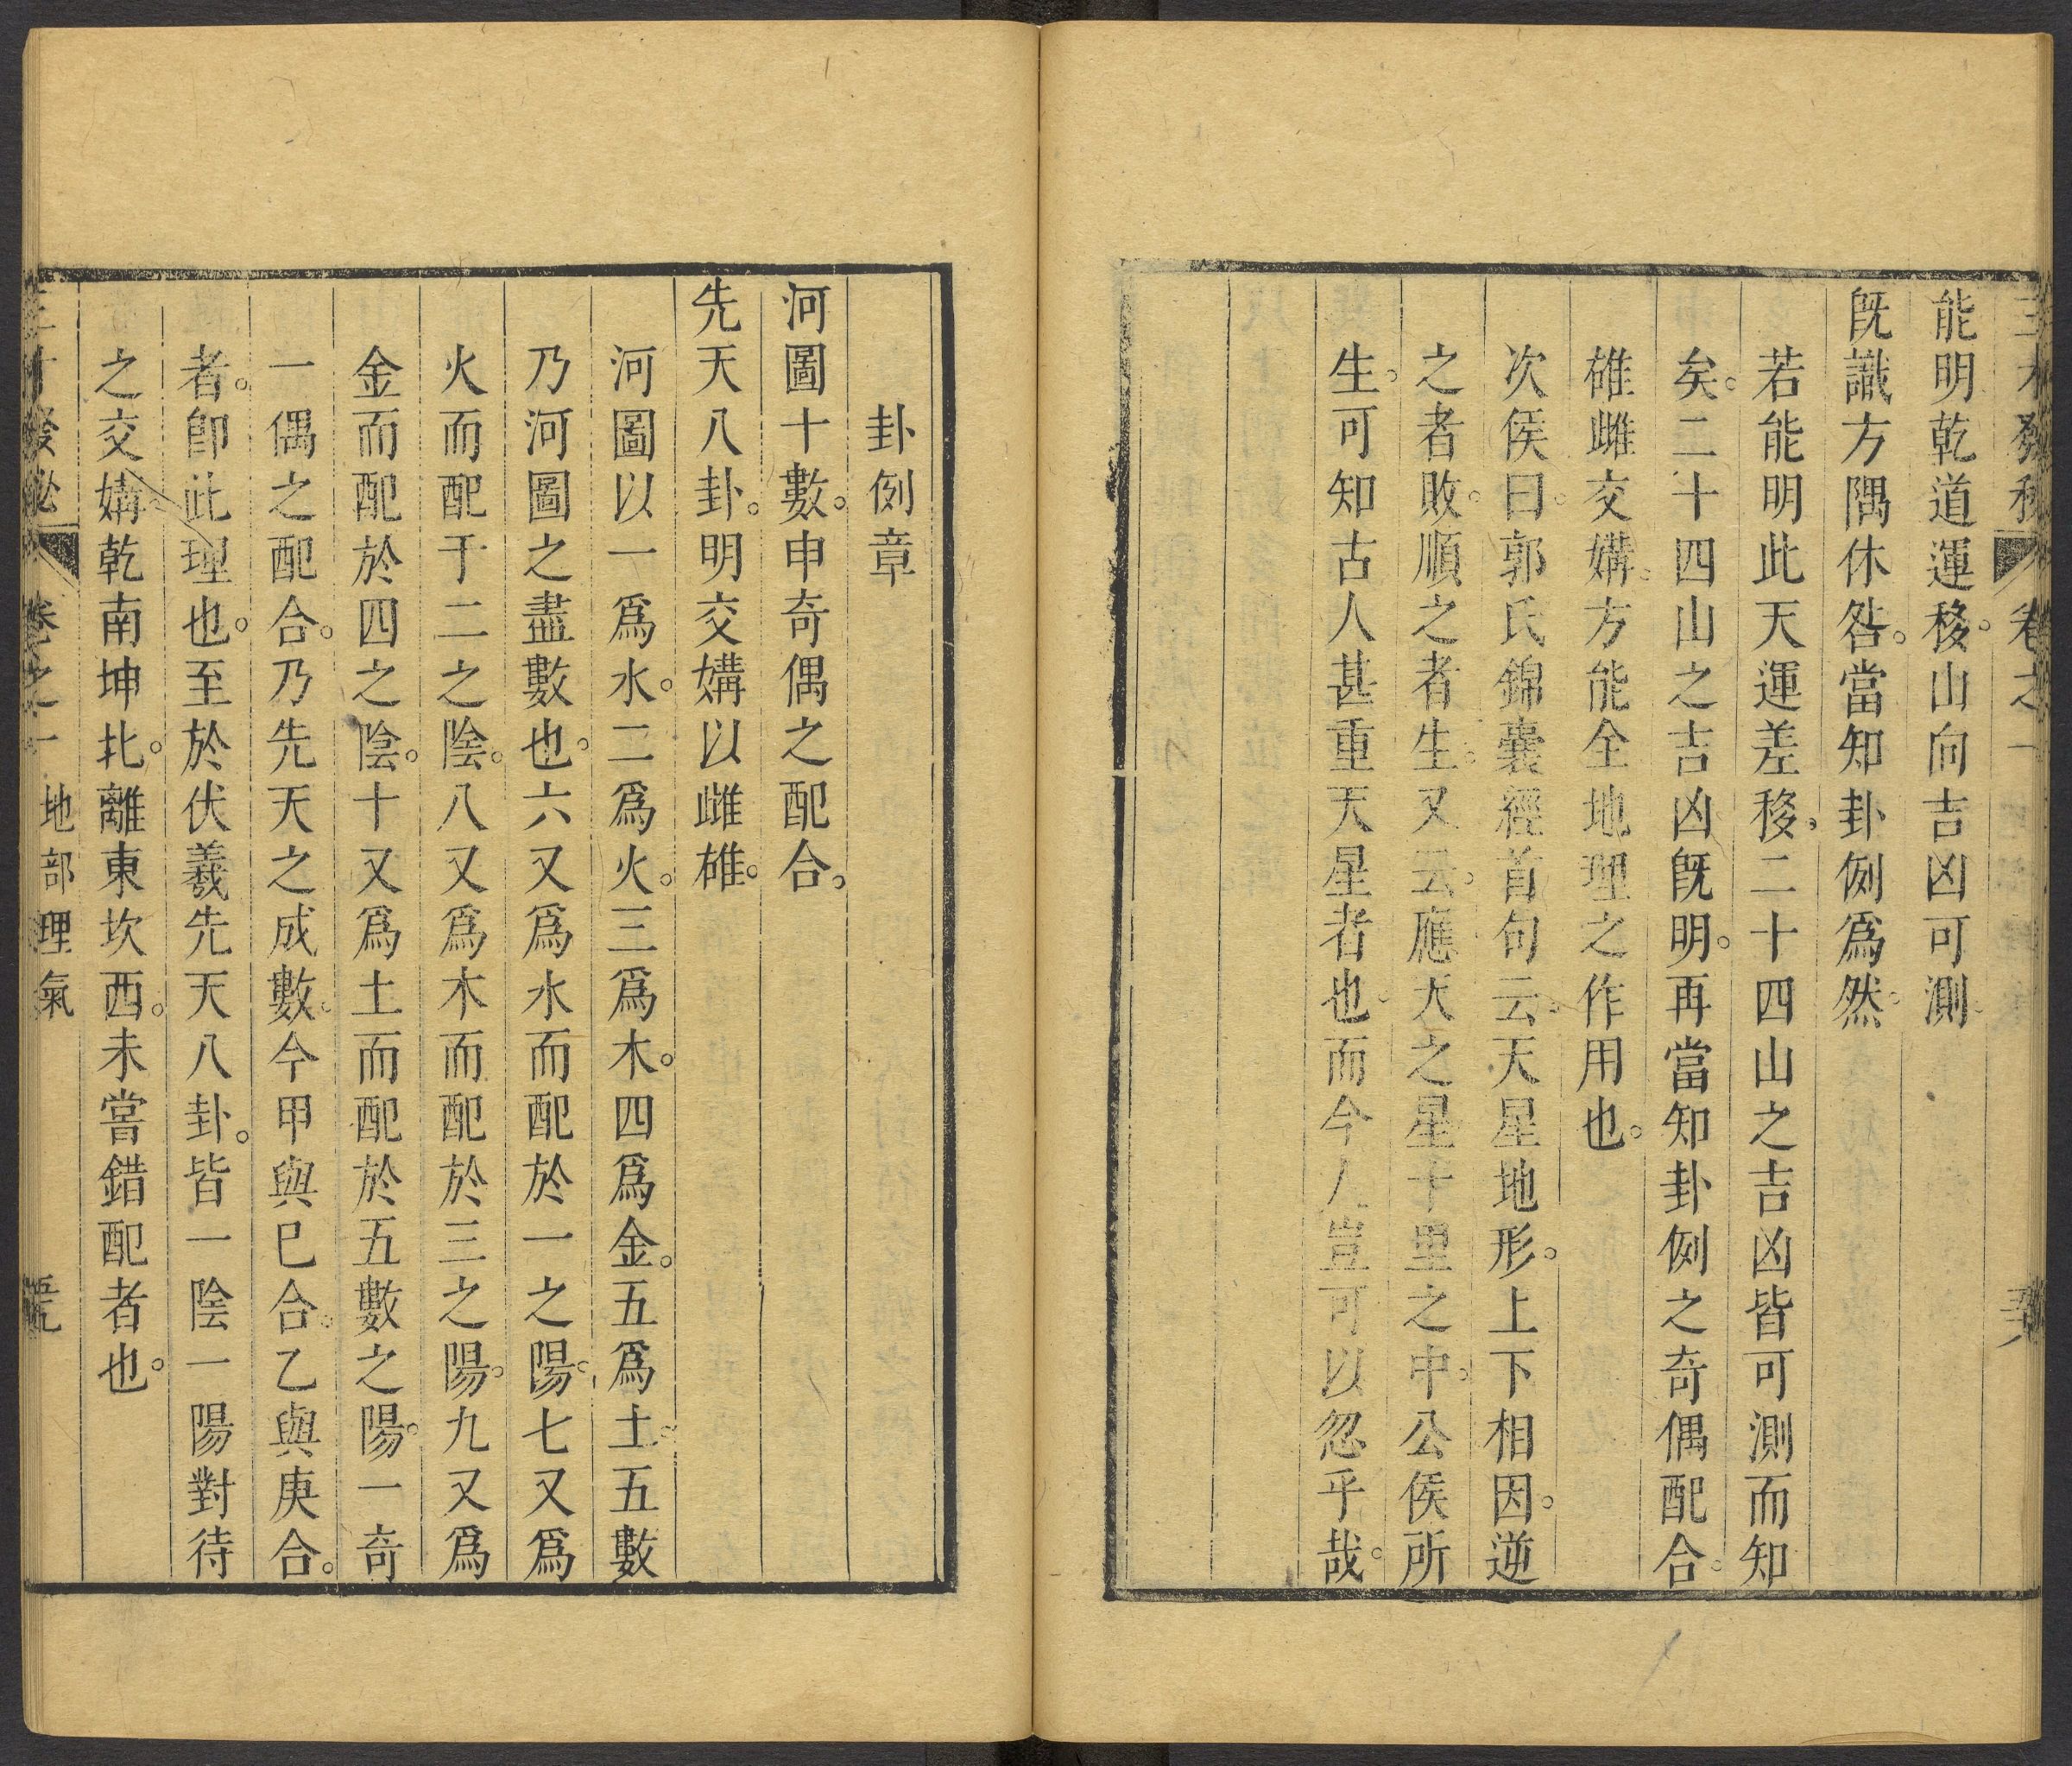 卷之一
能明乾道運移。山向吉凶可測。
旣識方隅休咎。當知卦例爲然。
若能明此天運差移。二十四山之吉凶皆可測而知
矣。二十四山之吉凶旣明。再當知卦例之奇偶配合。
雄雌交媾。方能全地理之作用也。
次侯曰。郭氏錦囊經首句云。天星地形。上下相因。逆
之者敗。順之者生。又云。應天之星。十里之中。公侯所
生。可知古人甚重天星者也。而今人豈可以忽乎哉。
卦例章
河圖十數。申奇偶之配合。
先天八卦。明交媾以雌雄。
河圖以一爲水。二爲火。三爲木。四爲金。五爲土。五數
乃河圖之盡數也。六又爲水而配於一之陽。七又爲
火而配于二之陰。八又爲木而配於三之陽。九又爲
金而配於四之陰。十又爲土而配於五數之陽。一奇
一偶之配合。乃先天之成數。今甲與巳合。乙與庚合。
者。卽此理也。至於伏羲先天八卦。皆一陰一陽對待
之交媾。乾南坤北。離東坎西。未嘗錯配者也。
卷之一 地部理氣